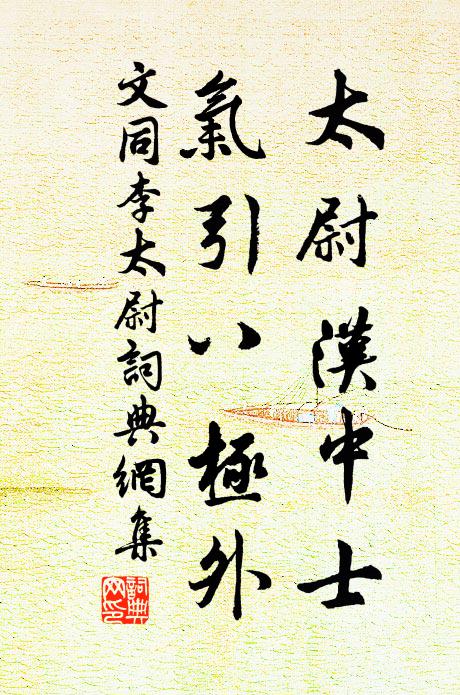 太尉漢中士
氣引八極外
文同李太尉詞典網集
詞典
网印